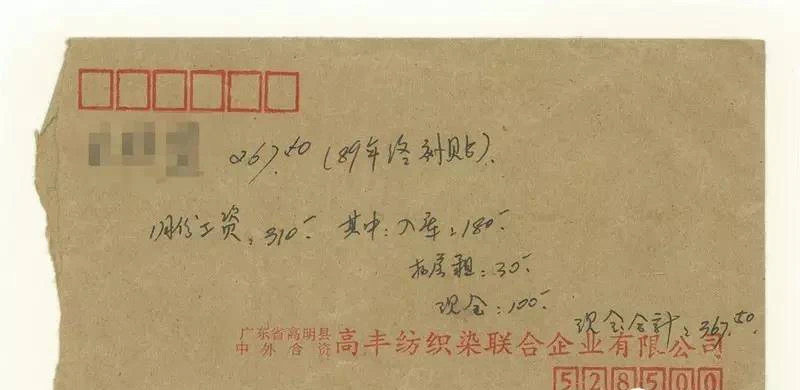 267.50（89年终补贴）.
1月份工资：310.- 其中：入库：180.-
扣房租：30.-
现金：100.-
现金合计：367.50.
广东省高明县
中外合资 高丰纺织染联合企业有限公司
528500